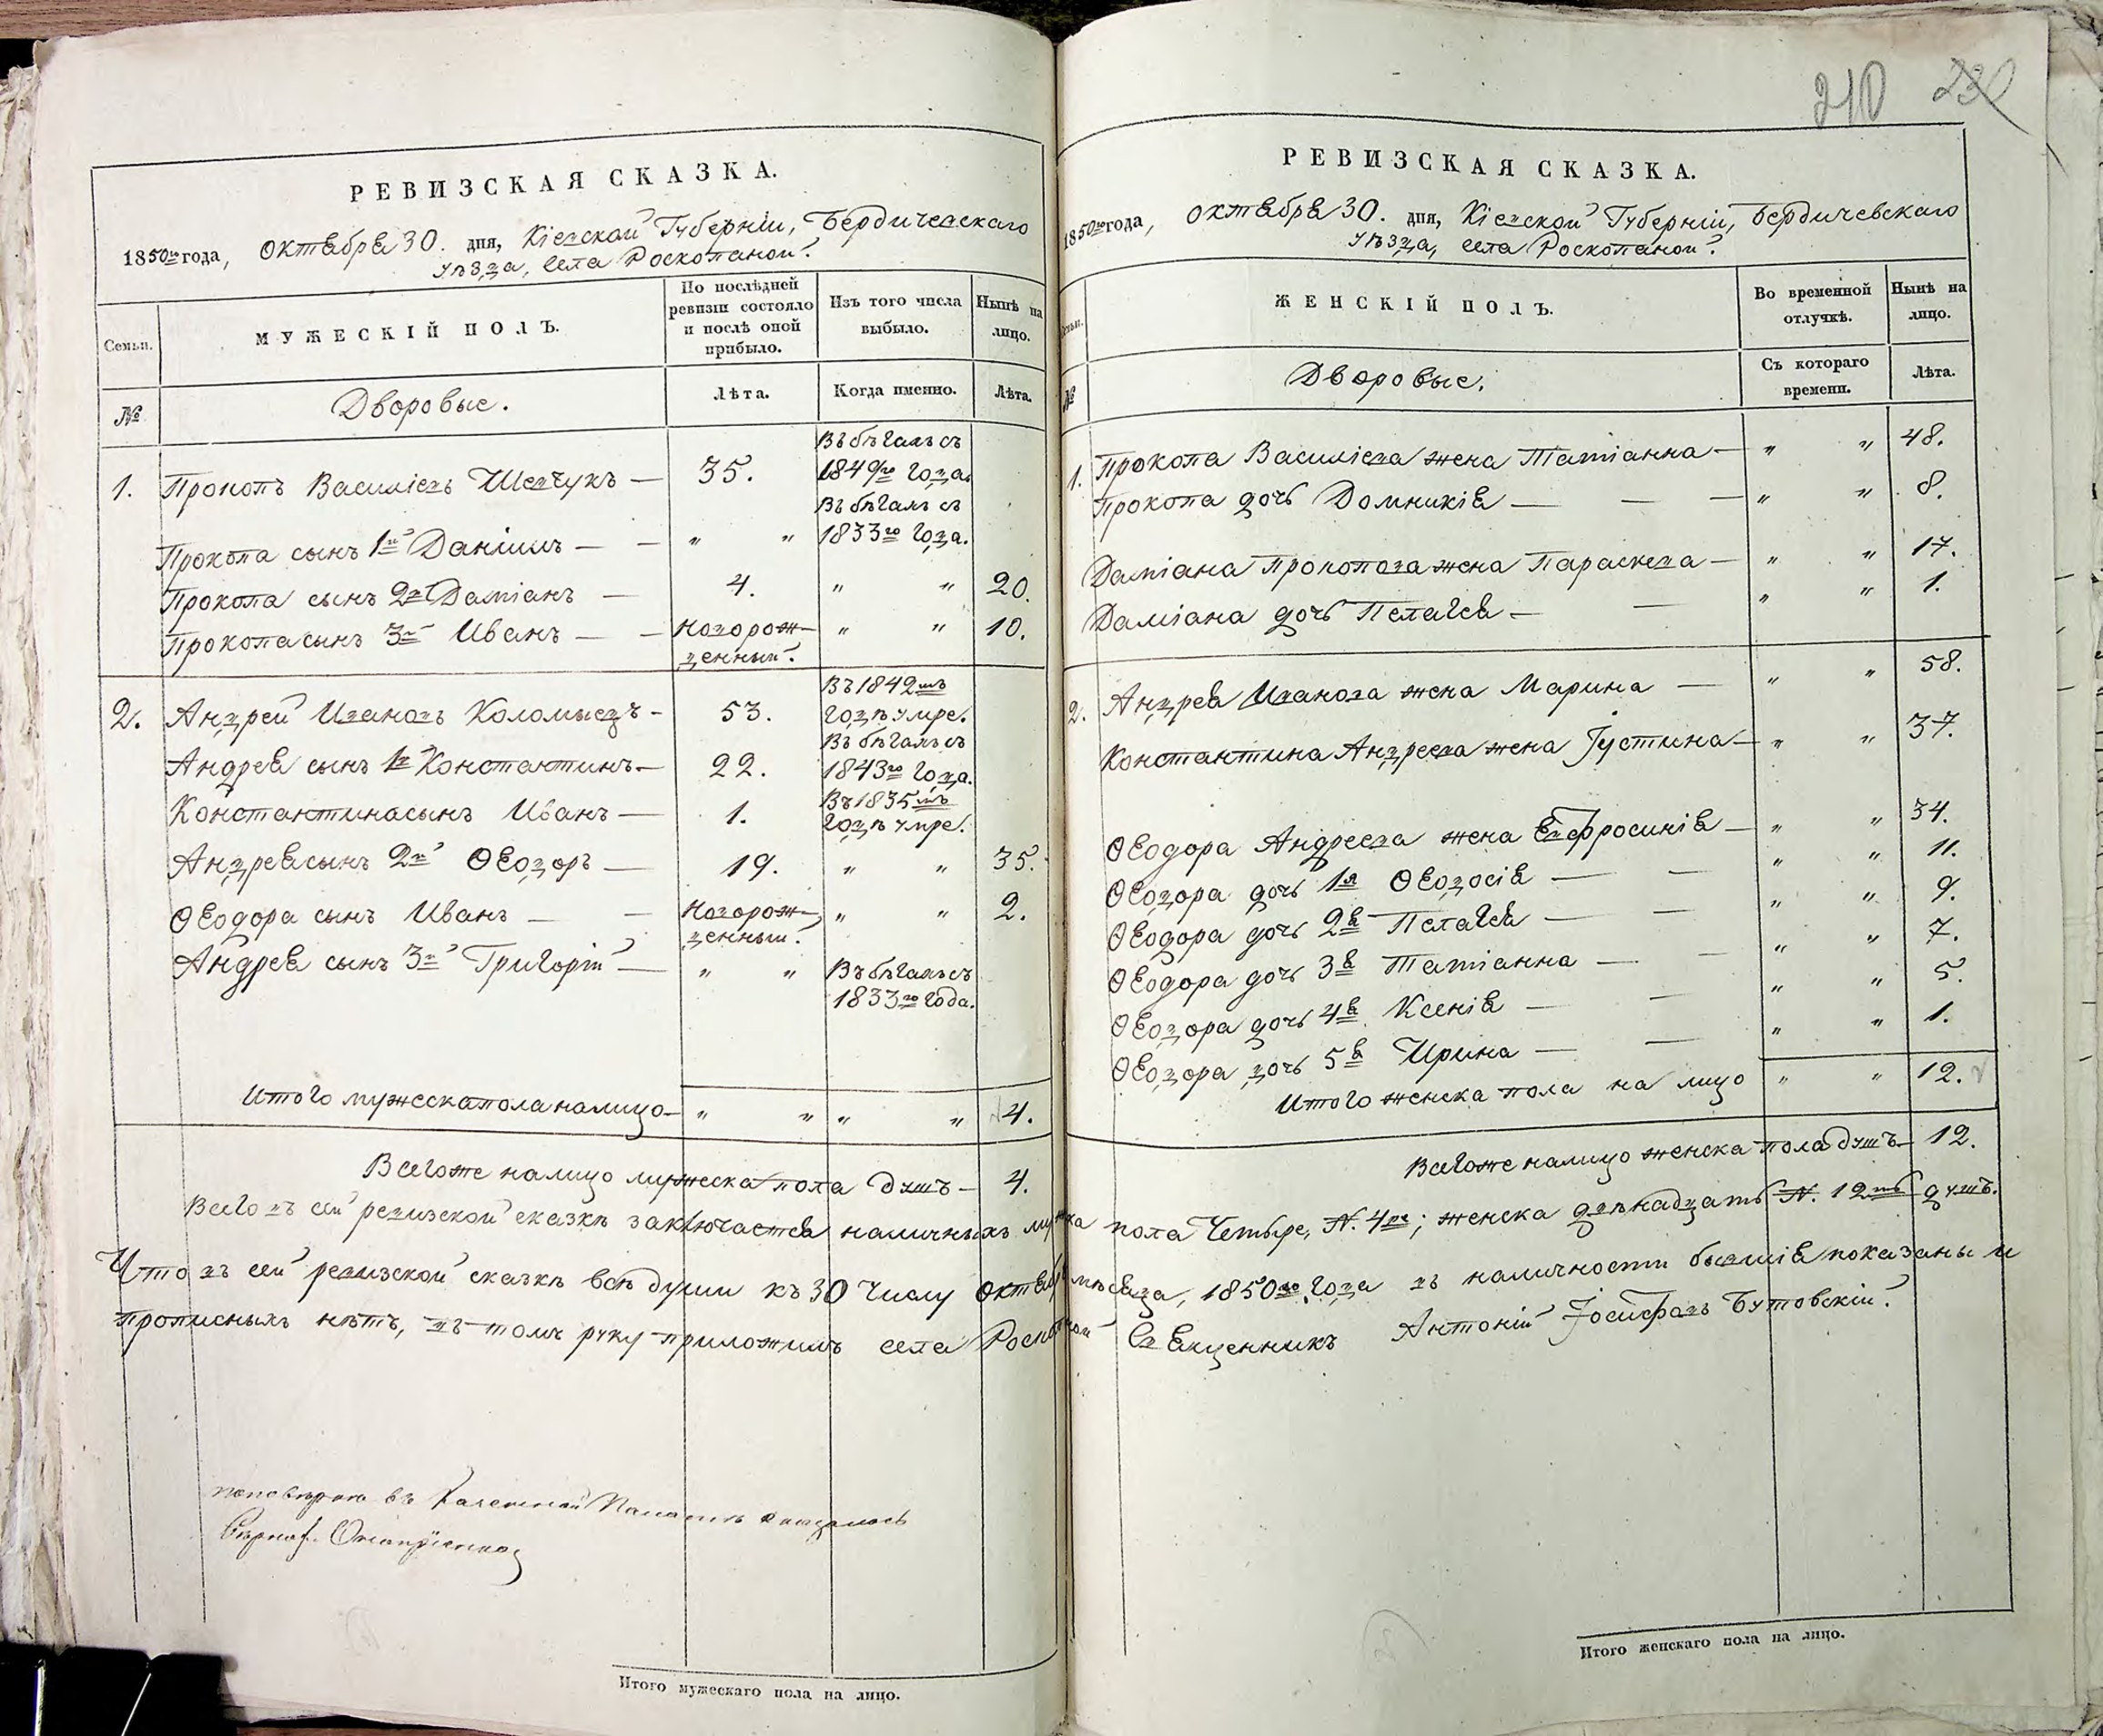 210 230
РЕВИЗСКАЯ СКАЗКА.
1850го года, Октября 30. дня, Кіевской Губерніи, Бердичевскаго
уѣзда, села Роскопаной.
Семьи. МУЖЕСКІЙ ПОЛЪ. По послѣдней ревизіи состояло и послѣ оной прибыло. Изъ того числа выбыло. Нынѣ на лицо.
№ Дворовые. Лѣта. Когда именно. Лѣта.
1. Прокопъ Василіевъ Шевчукъ — 35. Въ бѣгахъ съ 1849го года.
Прокопа сынъ 1й Даніилъ — — " " Въ бѣгахъ съ 1833го года.
Прокопа сынъ 2й Даміанъ — 4. " " 20.
Прокопа сынъ 3й Иванъ — — Новорожденный. " " 10.
2. Андрей Ивановъ Коломыецъ - 53. Въ 1842мъ годѣ умре.
Андрея сынъ 1й Константинъ — 22. Въ бѣгахъ съ 1843го года.
Константина сынъ Иванъ — 1. Въ 1835мъ годѣ умре.
Андрея сынъ 2й Ѳеодоръ — 19. " " 35.
Ѳеодора сынъ Иванъ — — Новорожденный. " " 2.
Андрея сынъ 3й Григорій — " " Въ бѣгахъ съ 1833го года.
Итого мужеска пола налицо — " " " " 4.
Всегоже налицо мужеска пола душъ — 4.
РЕВИЗСКАЯ СКАЗКА.
1850го года, Октября 30. дня, Кіевской Губерніи, Бердичевскаго
уѣзда, села Роскопаной.
Семьи. ЖЕНСКІЙ ПОЛЪ. Во временной отлучкѣ. Нынѣ на лицо.
№ Дворовые. Съ котораго времени. Лѣта.
1. Прокопа Василіева жена Татіанна — " " 48.
Прокопа дочь Домникія — — — " " 8.
Даміана Прокопова жена Параскева — " " 17.
Даміана дочь Пелагея — — " " 1.
2. Андрея Иванова жена Марина — " " 58.
Константина Андреева жена Іустина — " " 37.
Ѳеодора Андреева жена Евфросинія — " " 34.
Ѳеодора дочь 1я Ѳеодосія — — " " 11.
Ѳеодора дочь 2я Пелагея — — " " 9.
Ѳеодора дочь 3я Татіанна — — " " 7.
Ѳеодора дочь 4я Ксенія — — " " 5.
Ѳеодора дочь 5я Ирина — — " " 1.
Итого женска пола на лицо " " 12.
Всегоже налицо женска пола душъ — 12.
Всего въ сей ревизской сказкѣ заключается наличныхъ мужска пола Четыре, N. 4ре; женска двѣнадцать N. 12ть душъ.
Что въ сей ревизской сказкѣ всѣ души къ 30 Числу Октября мѣсяца, 1850го года въ наличности бывшія показаны и
прописныхъ нѣтъ, въ томъ руку приложилъ села Роскопаной Священникъ Антоній Іосифовъ Бутовскій.
по повѣрке въ Казенной Палатѣ оказалось
Итого мужескаго пола на лицо.
Итого женскаго пола на лицо.